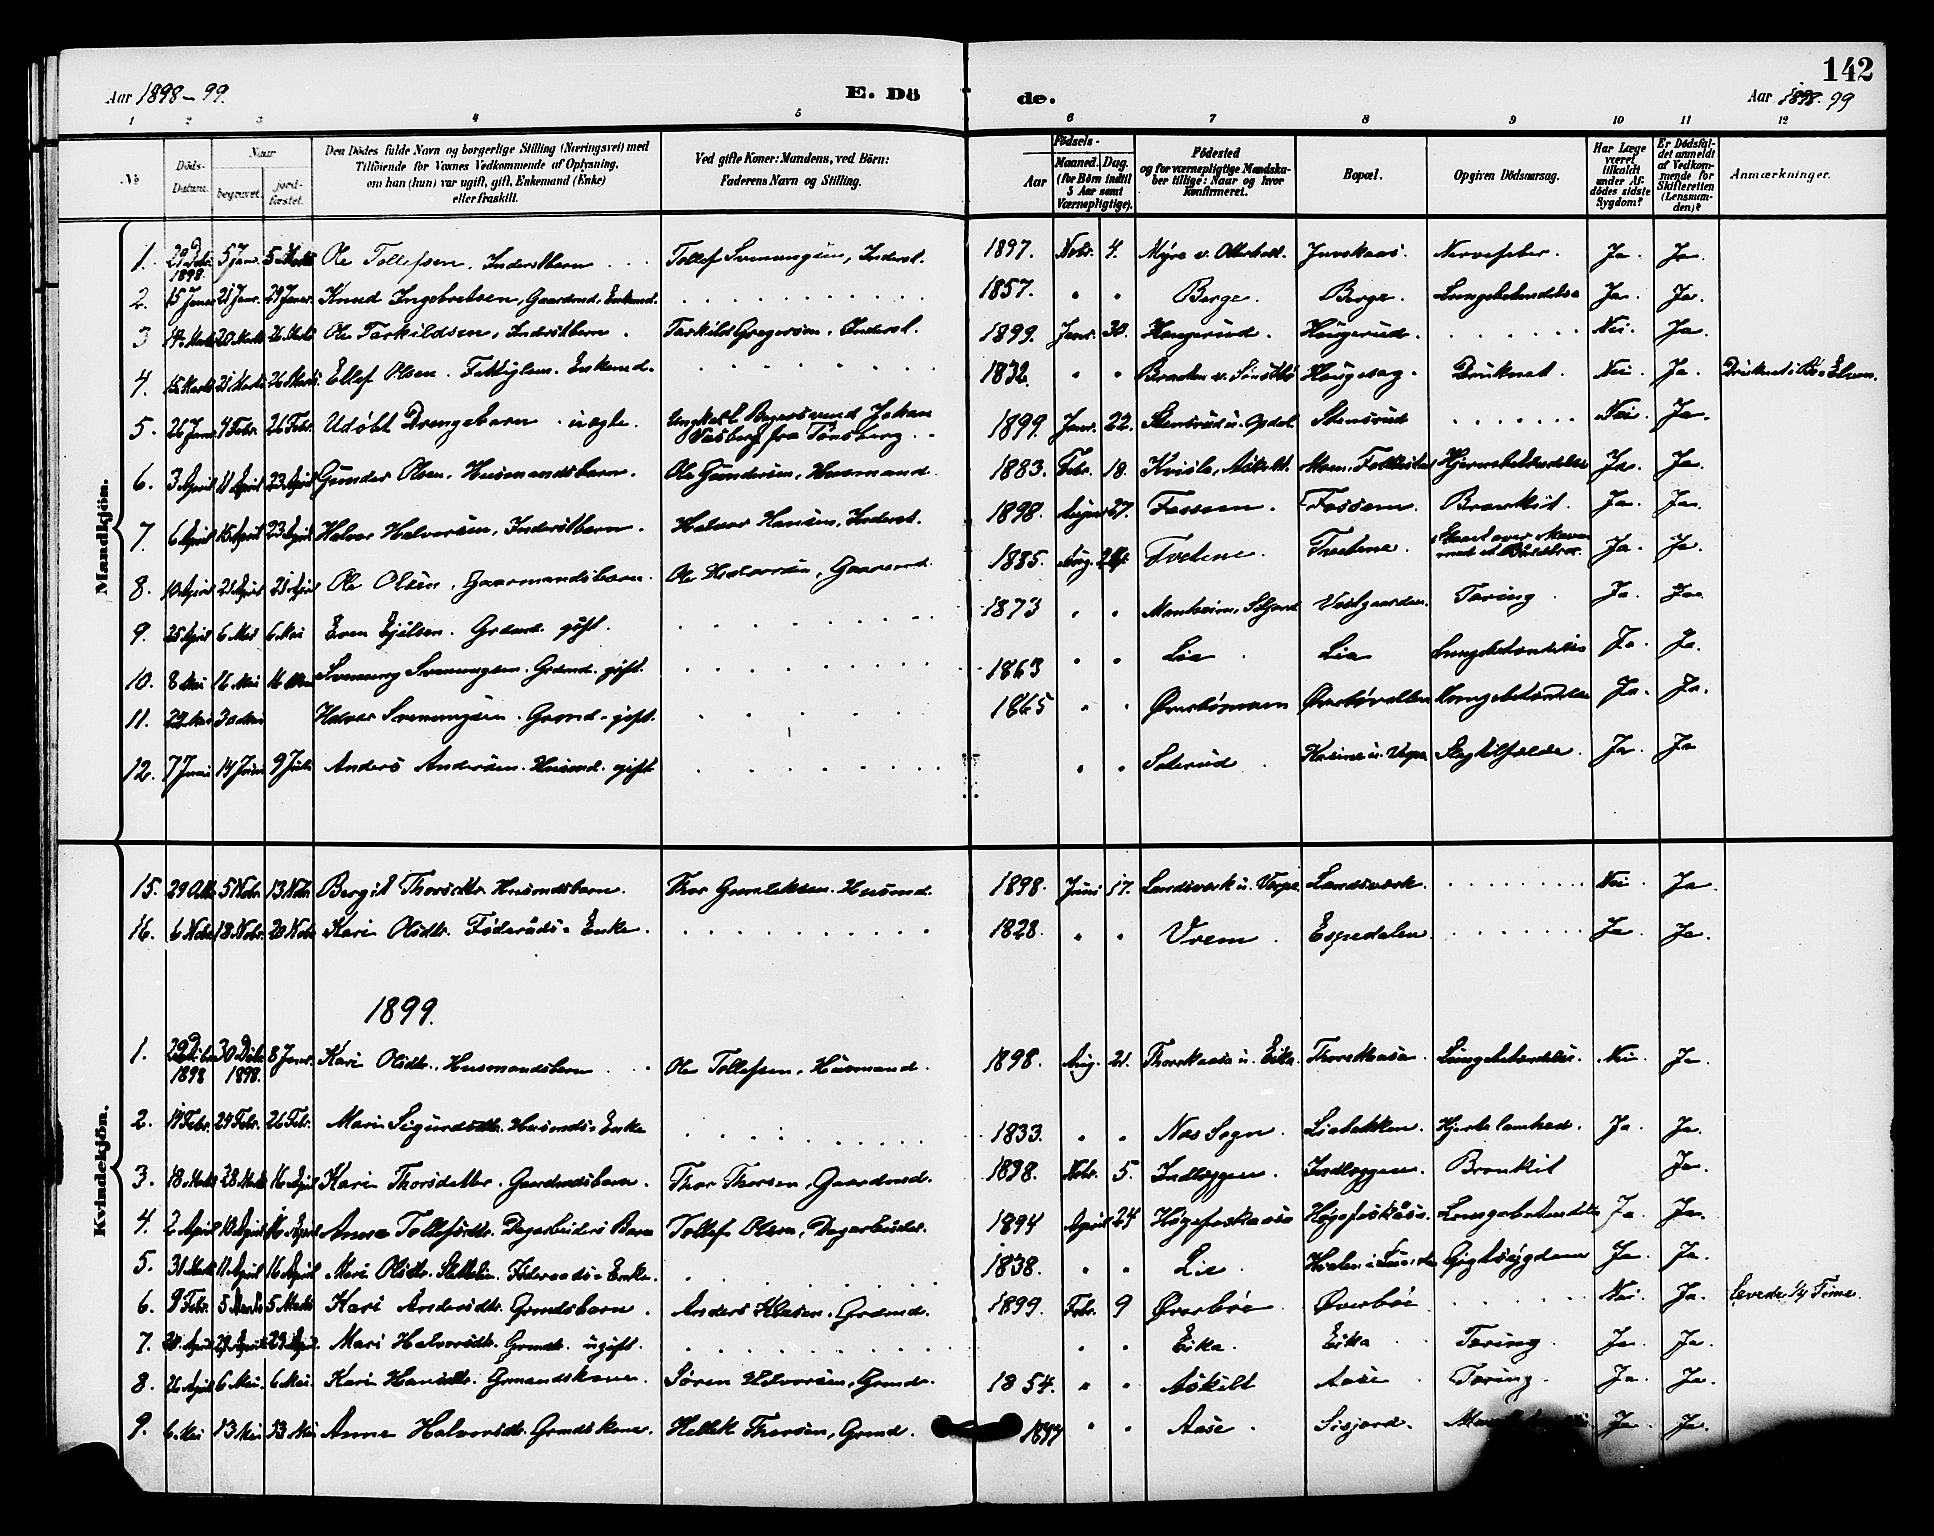 142
Aar 1898-99.
E. Dö de.
Aar 1898-99
1 2 3 4 5 6 7 8 9 10 11 12
No
Döds-Datum.
Naar begravet. jord-fæstet.
Den Dödes fulde Navn og borgerlige Stilling (Næringsvei) med Tilföiende for Voxnes Vedkommende af Oplysning, om han (hun) var ugift, gift, Enkemand (Enke) eller fraskilt.
Ved gifte Koner: Mandens, ved Börn: Faderens Navn og Stilling.
Födsels-
Aar
Maaned. Dag. (for Börn indtil 5 Aar samt Værnepligtige).
Födested og for værnepligtige Mandskaber tillige: Naar og hvor Konfirmeret.
Bopæl.
Opgiven Dödsaarsag.
Har Læge været tilkaldt under Afdödes sidste Sygdom?
Er Dödsfaldet anmeldt af Vedkommende for Skifteretten (Lensmanden)?
Anmærkninger.
Mandkjön.
1. 29 Dcbr. 1898. 5 Janr. 5 Marts Ole Tollefsen, Inderstbarn Tollef Svenungsen, Inderst. 1897. Novbr. 4. Myre v. Juvskaas. Nervefeber. Ja. Ja.
2. 15 Janr. 21 Janr. 29 Janr. Knud Ingebretsen, Gaardmd. Enkemd. 1857. " " Berge. Berge. Lungebetændelse Ja. Ja.
3 14 Marts 20 Marts 26 Marts Ole Tarkildsen, Inderstbarn. Tarkild Gregersen, Inderst. 1899. Janr. 30. Haugerud. Haugerud. Nei. Ja.
4. 15 Marts 21 Marts 26 Marts Ellef Olsen. Fattiglem. Enkemd. 1832. " " Braaten v. Haugesag. Druknet. Nei. Ja. Druknet i Bø Elven.
5. 26 Janr. 4 Febr. 26 Febr. Udöbt Drengebarn uægte. Ungkarl Johan fra Tönsberg. 1899. Janr. 22. Stensrud u. Opdal. Stensrud Nei. Ja.
6. 3 April 11 April 23 April Gunder Olsen. Husmandsbarn. Ole Gundersen, Husmand. 1883. Febr. 18. Kvisla, Askildt Hjernebetændelse Ja. Ja.
7. 6 April 15 April 23 April Halvor Halvorsen, Inderstbarn. Halvor Hansen, Inderst. 1898. August 27. Fossem. Fossem. Bronkit. Ja. Ja.
8. 10 April 21 April 21 April Ole Olsen. Gaarmandsbarn. Ole Halvorsen, Gaarmd. 1885. Aug. 24. Tvetene. Tvetene. Ja. Ja.
9. 25 April 6 Mai 6 Mai Even Ejelsen. Grdmd. gift. 1873 " " Manheim, Seljord Vestgaarden. Tæring. Ja. Ja.
10. 8 Mai 16 Mai 16 Mai Svenung Svenungsen. Grdmd. gift. 1863 " " Lia Lia Lungebetændelse Ja. Ja.
11. 22 Mai 30 Mai Halvor Svenungsen. Grdmd. gift. 1865 " " Lungebetændelse Ja. Ja.
12. 7 Juni 14 Juni 9 Juli Anders Andersen. Husmd. gift " " Solerud Slagtilfælde. Ja. Ja
Kvindekjön.
15. 29 Okt. 5 Novbr. 13 Novbr. Bergit Thorsdtr. Husmdsbarn. Thor Gunleiksen. Husmd. 1898. Juni 17. Landsverk u. Verpe Landsverk. Nei. Ja.
16. 6 Novbr. 18 Novbr. 20 Novbr. Kari Olsdtr. Föderåds-Enke. 1828. " " Vrem. Espedalen. Ja. Ja.
1899.
1. 22 Dcbr. 1898 30 Dcbr. 1898. 8 Janr. Kari Olsdtr. Husmandsbarn Ole Tollefsen, Husmand. 1898. Aug. 21. Thorekaasa u. Eika. Thorekaasa. Lungebetændelse. Nei. Ja.
2. 14 Febr. 24 Febr. 26 Febr. Mari Sigurdsdtr. Husmds-Enke 1833. " " Næs Sogn. Liabakken. Hjertelamhed. Ja. Ja.
3. 18 Marts 28 Marts 16 April Kari Thorsdatter. Gaardmdsbarn. Thor Thorsen, Gaardmd. 1898. Novbr. 5. Indlæggen. Indlæggen. Bronkit Ja.
4. 2 April 13 April 16 April Anne Tollefsdtr. Dagarbeiders Barn Tollef Olsen, Dagarbeider. 1894 April 24 Høgefoskaasa Høgefoskåsa. Lungebetændelse Ja. Ja.
5. 31 Marts 11 April 16 April Mari Olsdtr. Föderaads-Enke. 1838. " " Lie. Gigtsygdom Ja. Ja.
6. 9 Febr. 5 Marts 5 Marts Kari Andersdtr. Grmdsbarn. Anders Klasen. Grdmd. 1899. Febr. 9 Øverbøe. Øverbøe Nei. Ja. Levede 1/4 Time.
7. 20 April 29 April 29 April Mari Halvorsdtr. Grmdt. ugift. " " Eika. Eika Tæring. Ja. Ja.
8. 26 April 6 Mai. 6 Mai. Kari Hansdtr. Grmandskone. Søren Halvorsen, Grmd. 1854. " " Askilt Aase Tæring. Ja. Ja.
9. 6 Mai 13 Mai 13 Mai Anne Halvorsdtr. Grmdskone. Hellek Thorsen, Grmd. " " Aase Sisjord. Ja. Ja.